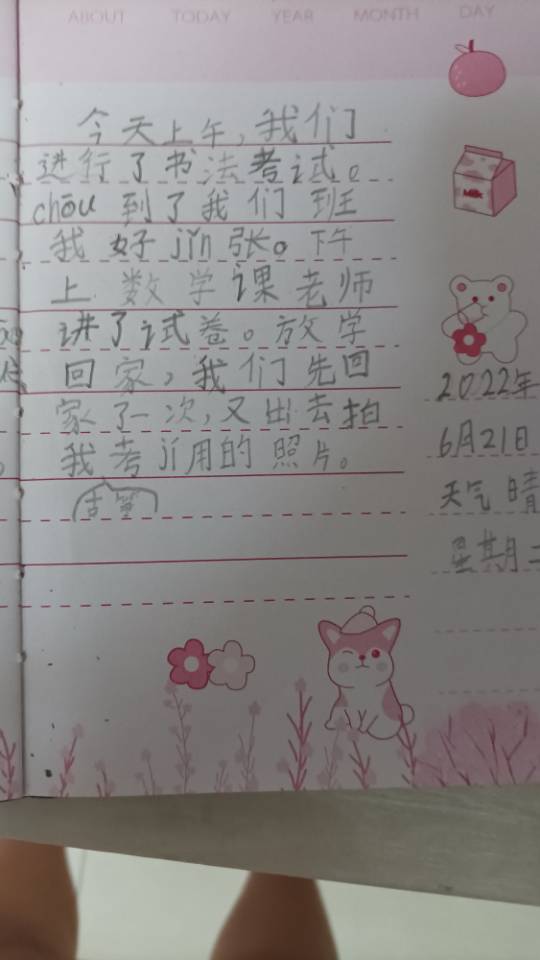 ABOUT TODAY YEAR MONTH DAY
今天上午，我们
进行了书法考试。
chōu 到了我们班
我好jǐn张。下午
上数学课老师
讲了试卷。放学
回家，我们先回
家了一次，又出去拍
我考jí用的照片。
古筝
2022年
6月21日
天气晴
星期二